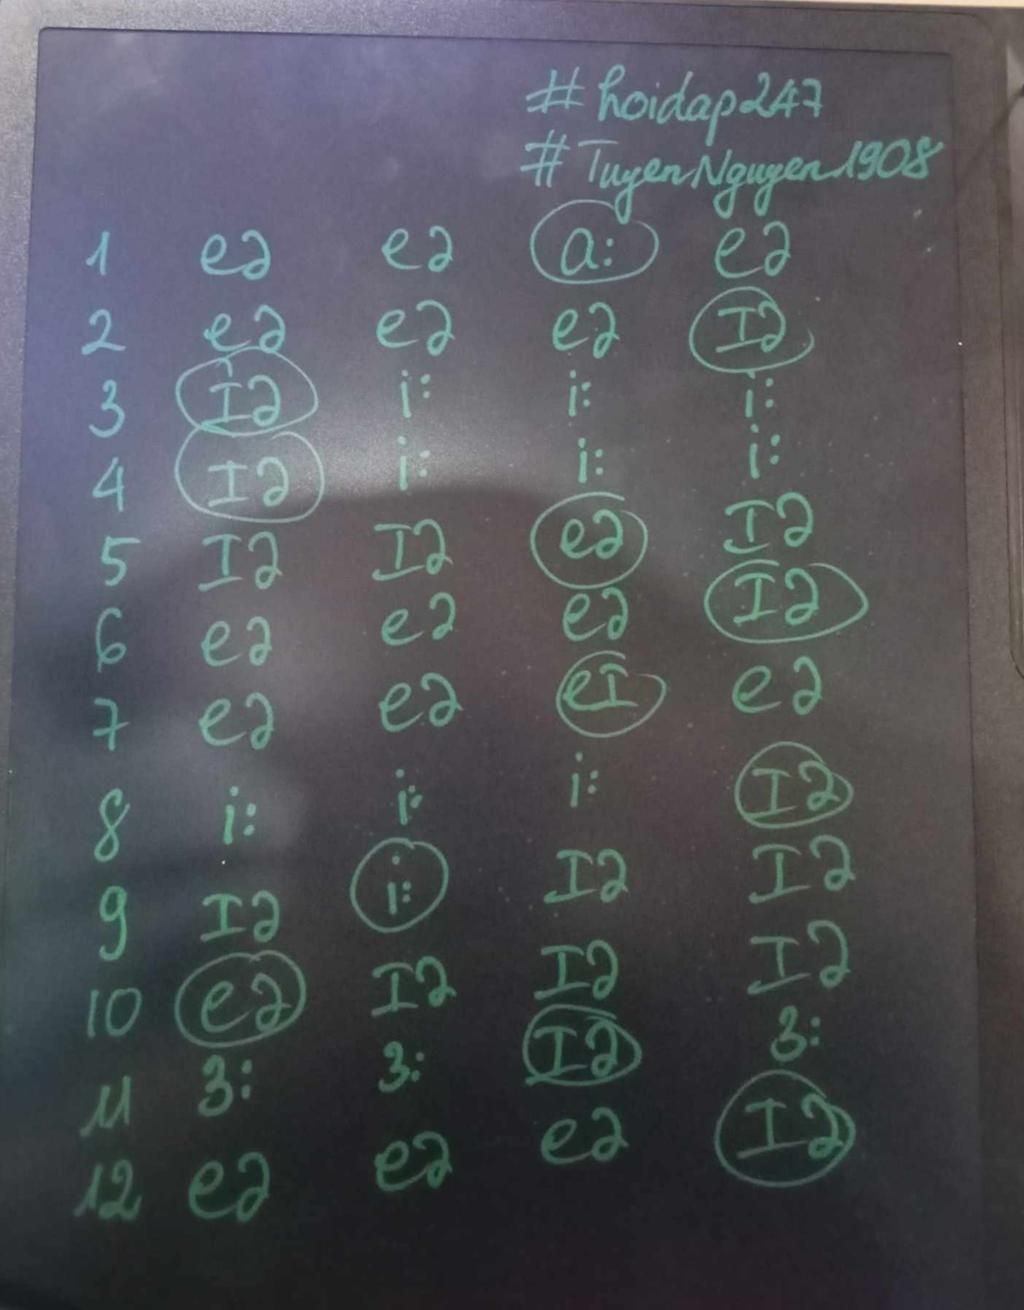 # hoidap247
# TuyenNguyen1908
1 eə eə a: eə
2 eə eə eə Iə
3 Iə i: i: i:
4 Iə i: i: i:
5 Iə Iə eə Iə
6 eə eə eə Iə
7 eə eə eI eə
8 i: i: i: Iə
9 Iə i: Iə Iə
10 eə Iə Iə Iə
11 3: 3: Iə 3:
12 eə eə eə Iə